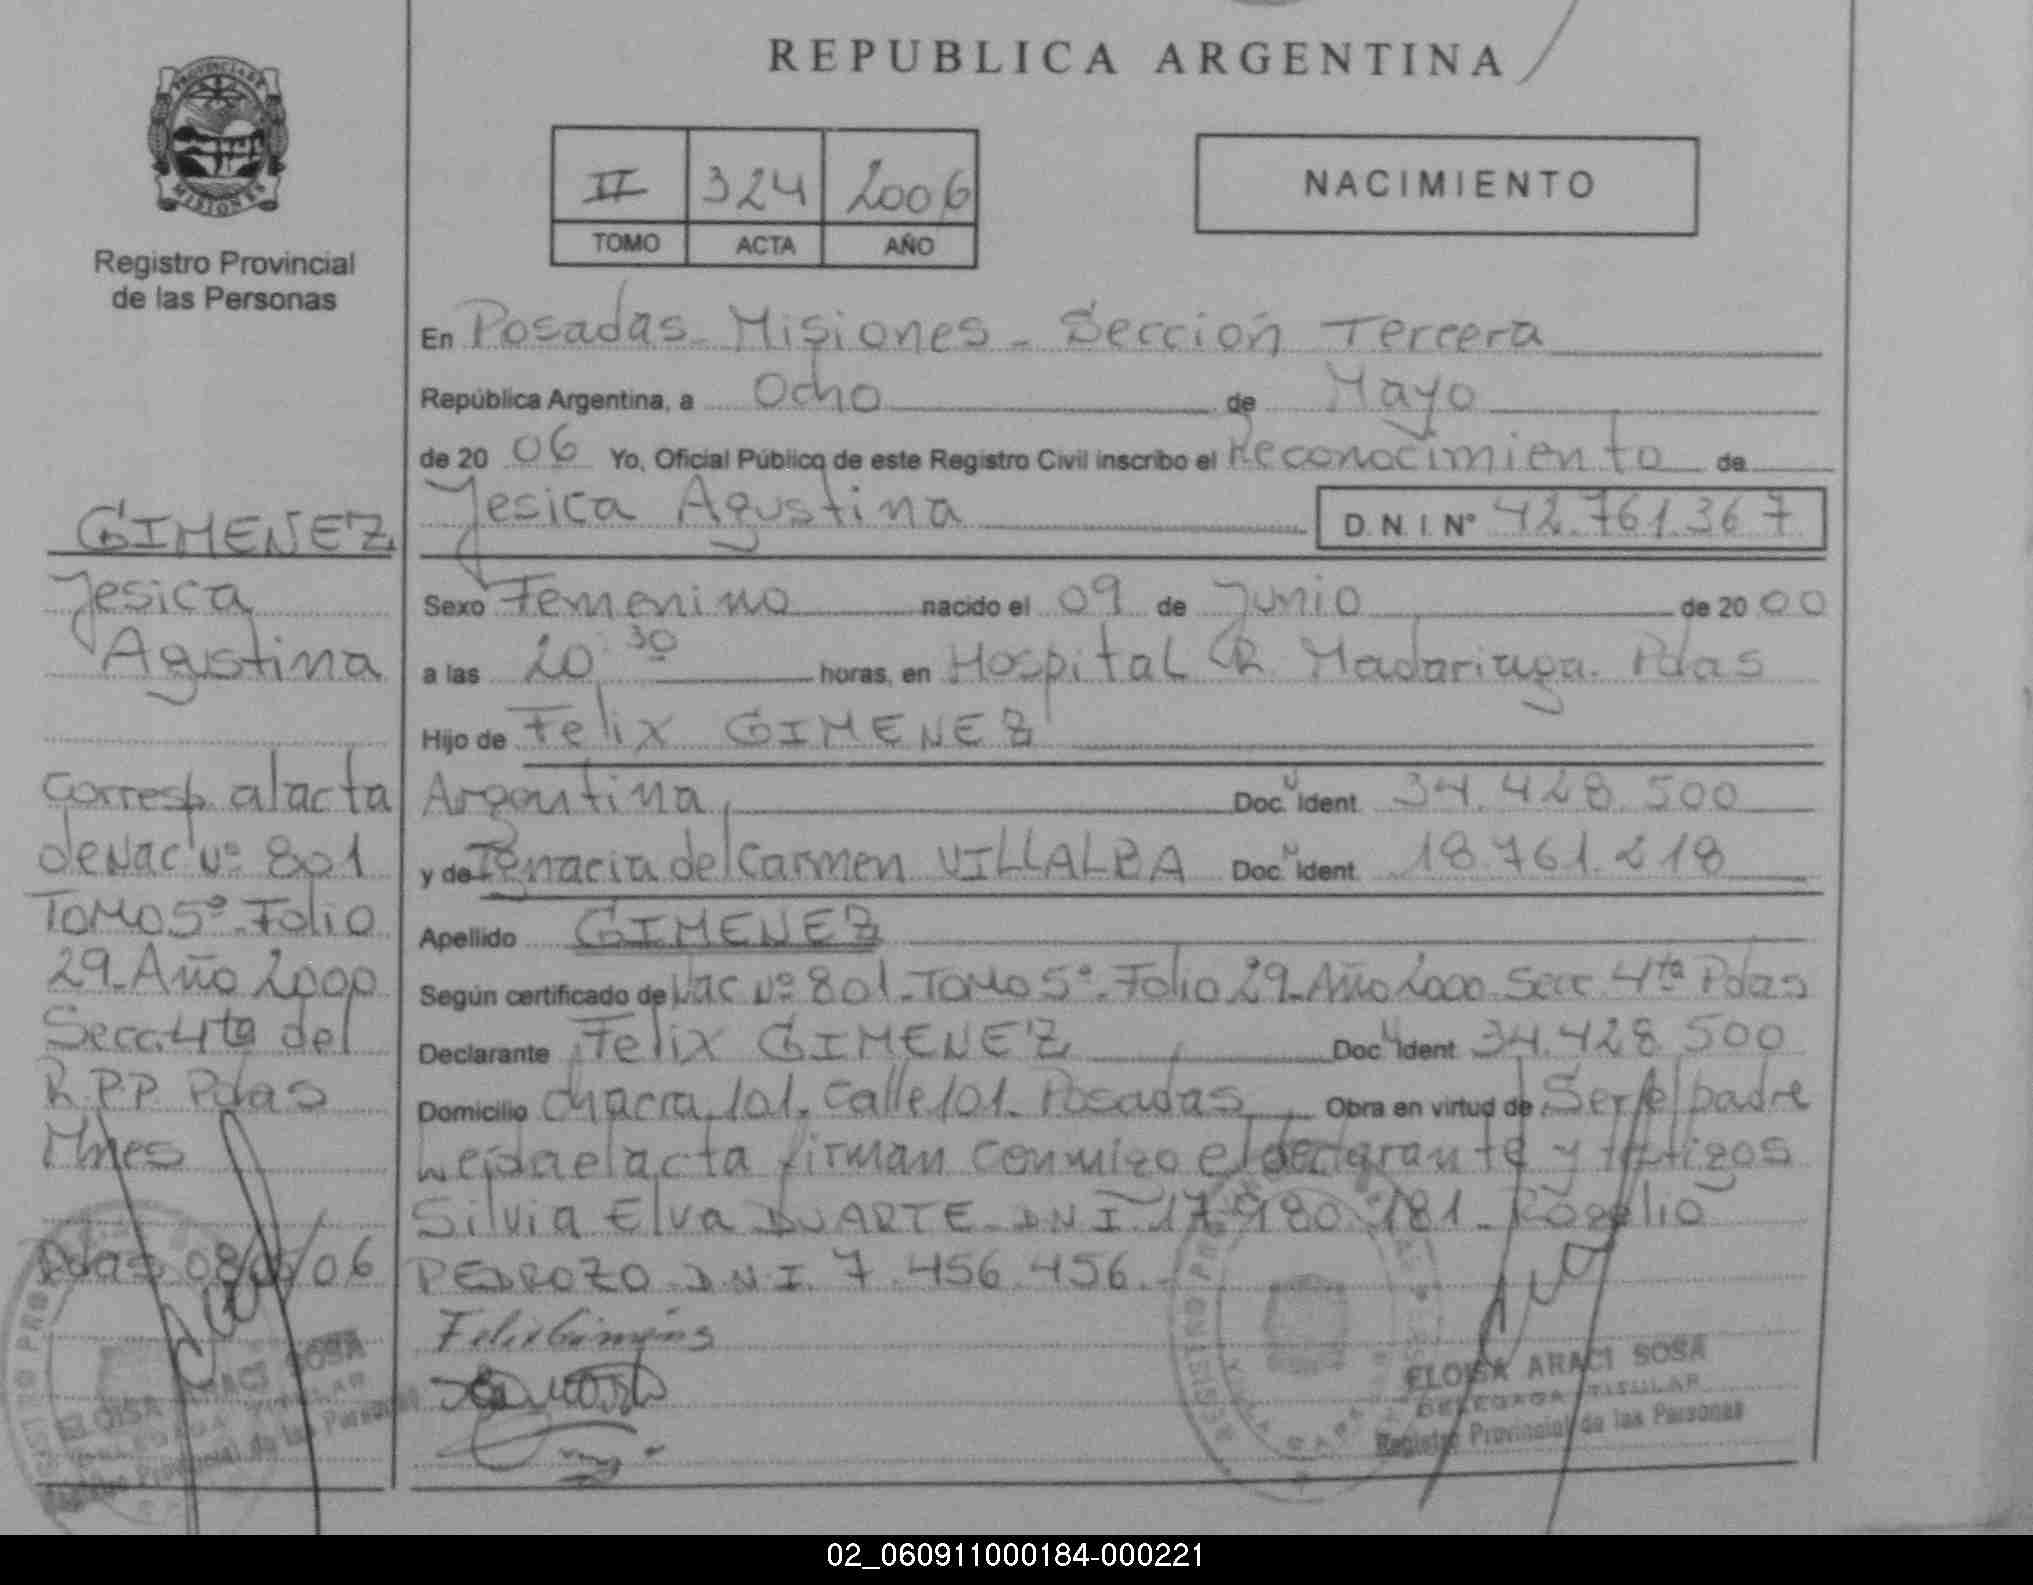 REPUBLICA ARGENTINA
PROVINCIA DE
MISIONES
Registro Provincial
de las Personas
II 324 2006
TOMO ACTA AÑO
NACIMIENTO
En Posadas - Misiones - Sección Tercera
República Argentina, a Ocho de Mayo
de 20 06 Yo, Oficial Público de este Registro Civil inscribo el Reconocimiento de
Jesica Agustina D.N.I. Nº 42.761.367
Sexo Femenino nacido el 09 de Junio de 20 00
a las 20:30 horas, en Hospital R. Madariaga. Pdas
Hijo de Felix GIMENEZ
Argentina, Doc. Ident. 34.428.500
y de Ignacia del Carmen VILLALBA Doc. Ident. 18.761.218
Apellido GIMENEZ
Según certificado de Nac Nº 801. Tomo 5º. Folio 29. Año 2000. Secc. 4ta Pdas
Declarante Felix GIMENEZ Doc. Ident. 34.428.500
Domicilio chacra 101. Calle 101. Posadas Obra en virtud de Ser el padre
Leida el acta firman conmigo el declarante y testigos
Silvia Elva DUARTE - DNI 17.980.181 - Rogelio
PEDROZO - DNI. 7.456.456.
Felix Gimenes
ELOISA ARACI SOSA
DELEGADA TITULAR
Registro Provincial de las Personas
GIMENEZ
Jesica
Agustina
Corresp. al acta
de Nac Nº 801
Tomo 5º. Folio
29. Año 2000
Secc. 4ta del
R.P.P. Pdas
Mnes
Pdas 08/05/06
ELOISA ARACI SOSA
DELEGADA TITULAR
Registro Provincial de las Personas
02_060911000184-000221